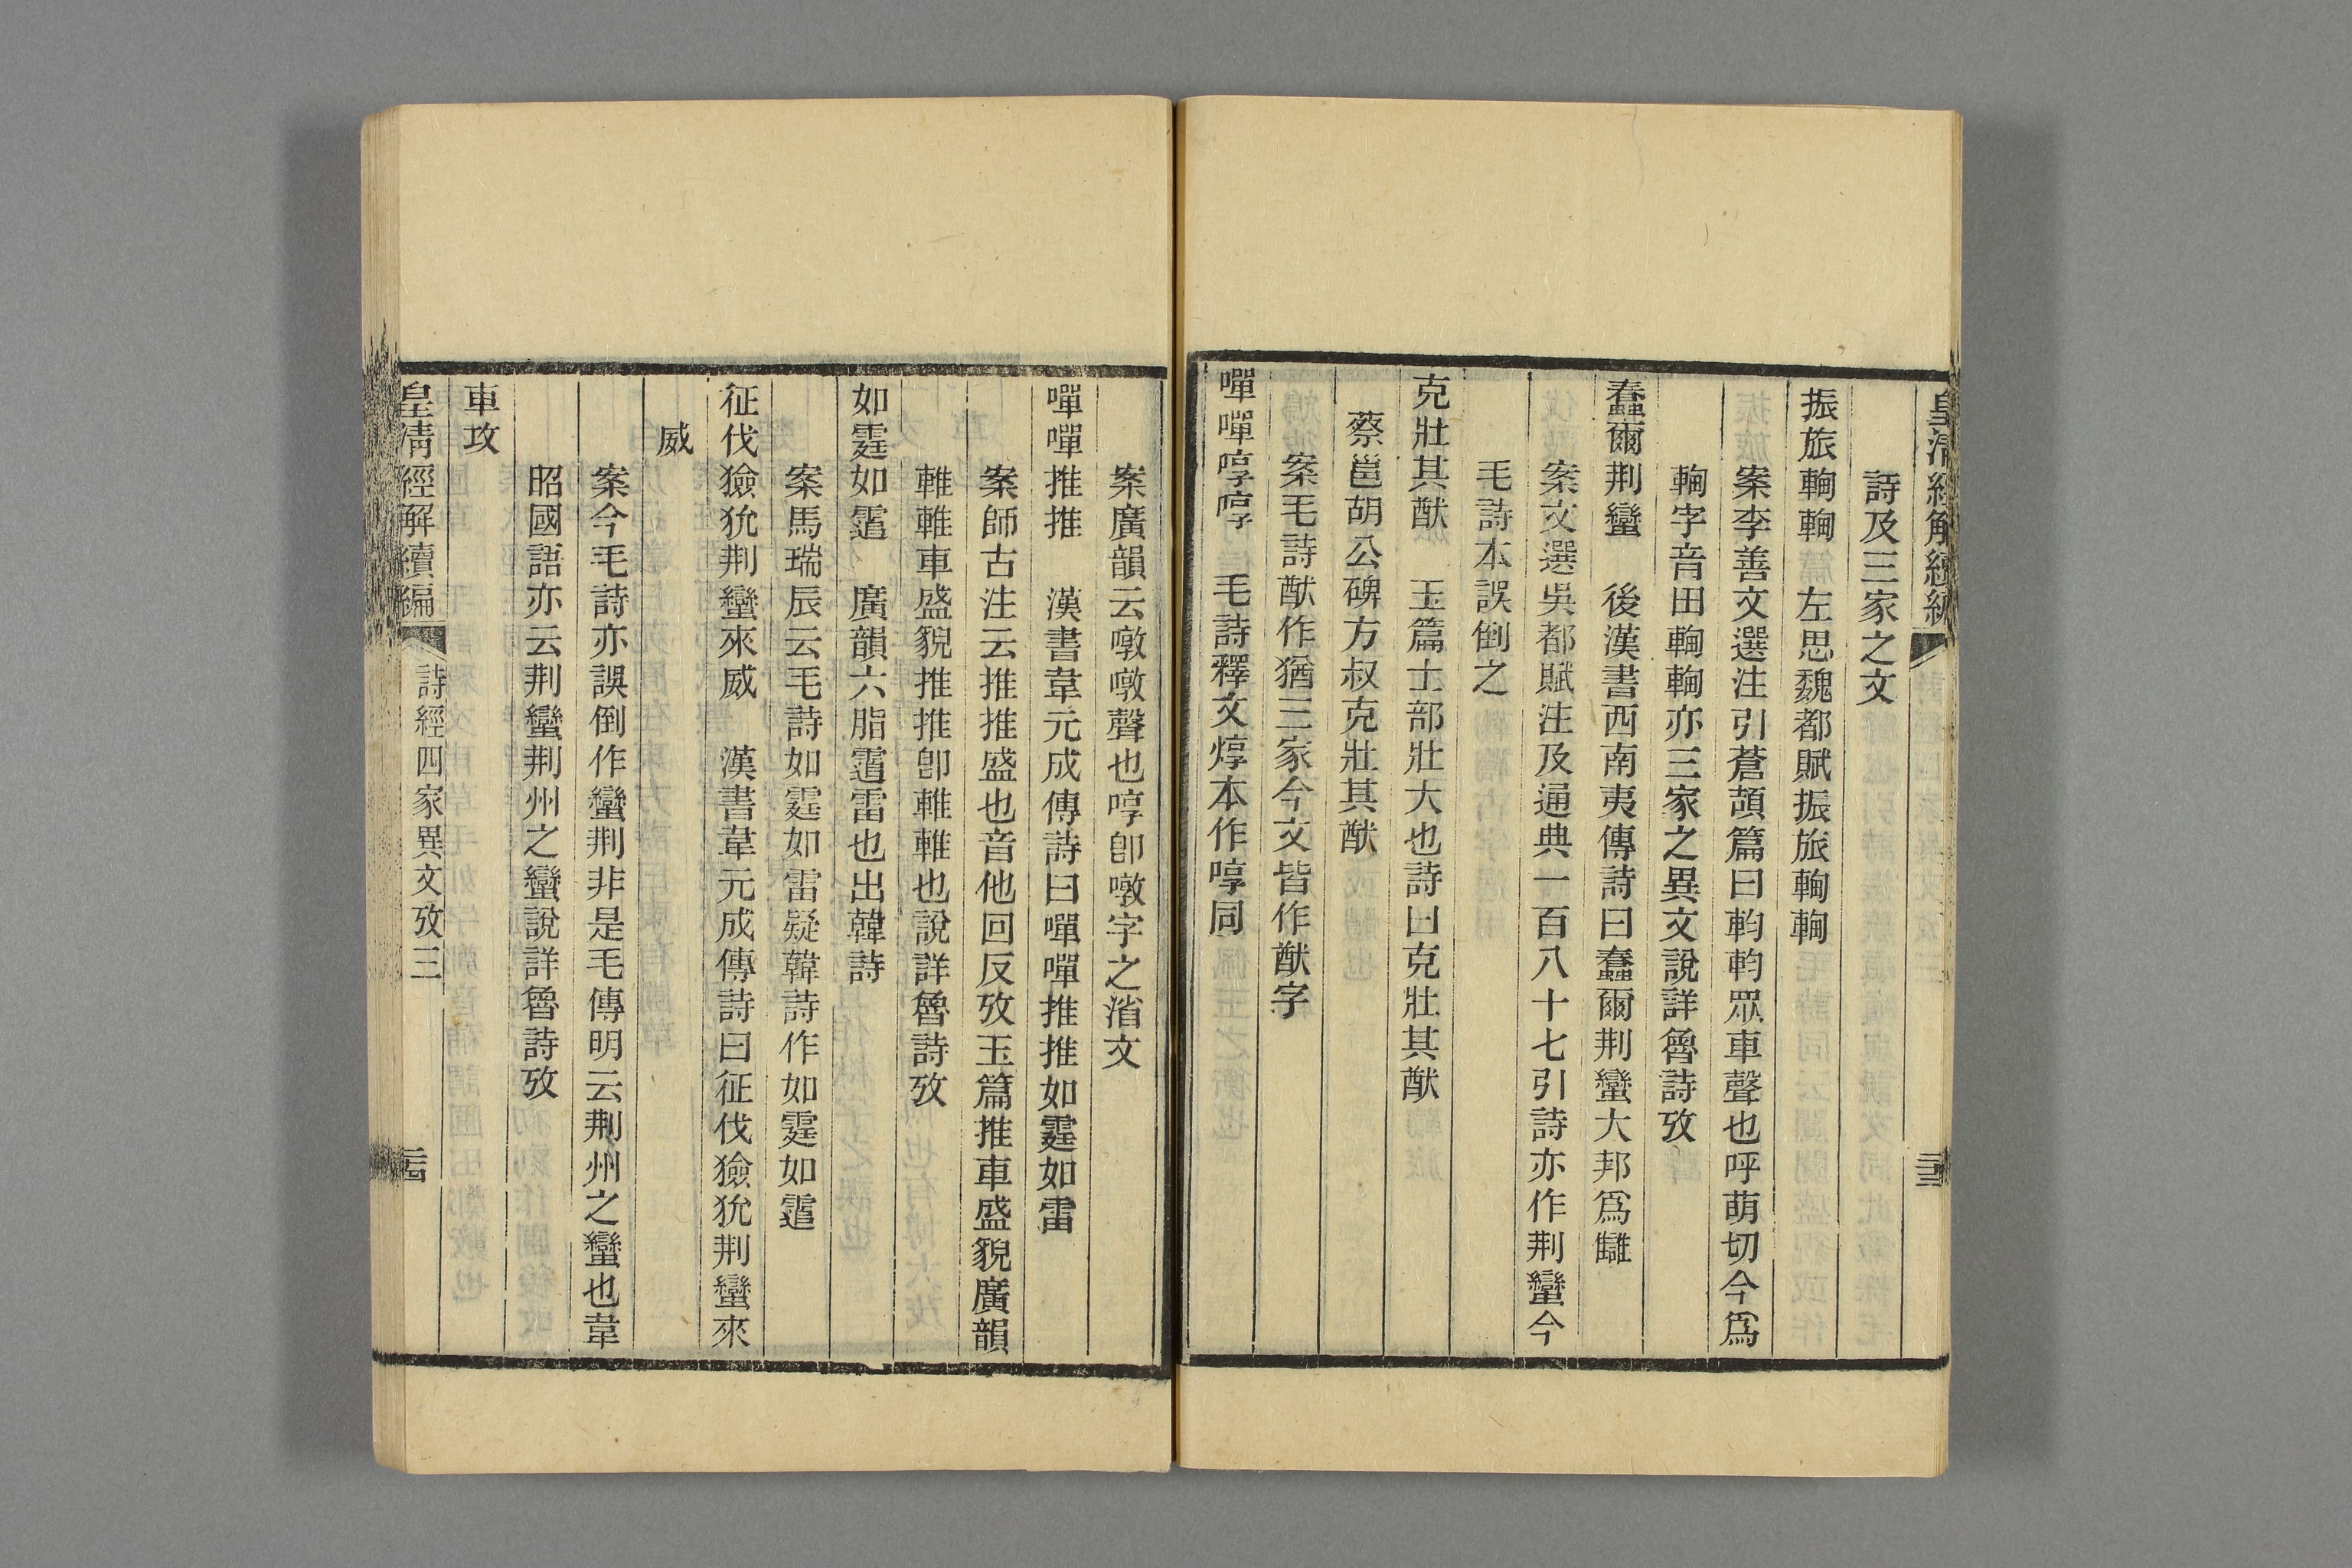 皇清經解續編
詩及三家之文
振旅輷輷　左思魏都賦振旅輷輷
案李善文選注引蒼頡篇曰軥軥眾車聲也呼萌切今爲
輷字音田輷輷亦三家之異文說詳魯詩攷
蠢爾荆蠻　後漢書西南夷傳詩曰蠢爾荆蠻大邦爲讎
案文選吳都賦注及通典一百八十七引詩亦作荆蠻今
毛詩本誤倒之
克壯其猷　玉篇士部壯大也詩曰克壯其猷
蔡邕胡公碑方叔克壯其猷
案毛詩猷作猶三家今文皆作猷字
嘽嘽啍啍　毛詩釋文焞本作啍同
案廣韻云噋噋聲也啍卽噋字之渻文
嘽嘽推推　漢書韋元成傳詩曰嘽嘽推推如霆如雷
案師古注云推推盛也音他回反攷玉篇推車盛貌廣韻
輫輫車盛貌推推卽輫輫也說詳魯詩攷
如霆如靁　廣韻六脂靁雷也出韓詩
案馬瑞辰云毛詩如霆如雷疑韓詩作如霆如靁
征伐獫狁荆蠻來威　漢書韋元成傳詩曰征伐獫狁荆蠻來
威
案今毛詩亦誤倒作蠻荆非是毛傳明云荆州之蠻也韋
昭國語亦云荆蠻荆州之蠻說詳魯詩攷
車攻
皇清經解續編　詩經四家異文攷三